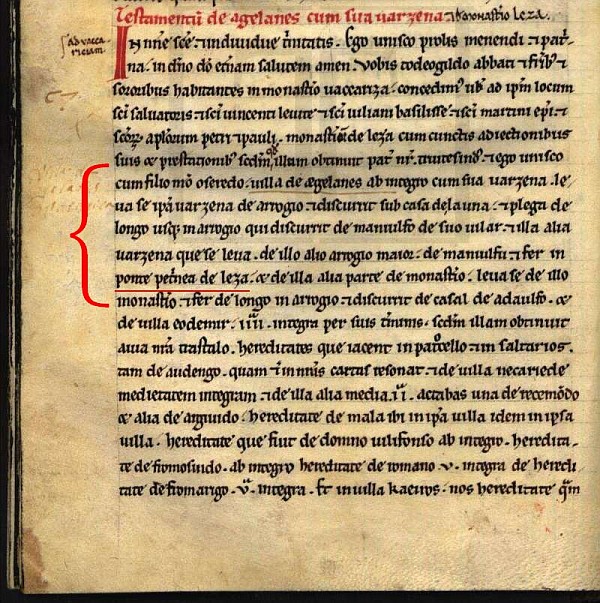 Testamentū de agelanes cum sua uarzena ⁊ de monasterio leza.
In nñe scē ⁊ indiuidue t̃nitatis. Ego unisco prolis menendi ⁊ pat̃r-
na. in dño dō et̃nam salutem amen. Vobis todeogildo abbati ⁊ fr̃ib; ⁊
sororibus habitantes in monast̃io uaccariza. concedim; ubi ad ip̃m locum
sc̃i saluatoris ⁊ sc̃i uincenti leuite ⁊ sc̃i iuliani basilisse ⁊ sc̃i martini ep̃i ⁊
sc̃orꝝ ap̃lorum petri ⁊ pauli. monast̃io de leza cum cunctis adiectionibus
suis & prestationib; scd̃m illam obtinuit pat̃ nr̃. truitesind; ⁊ ego unisco
cum filio mõ oseredo. uilla de ægelanes ab integro cum sua uarzena. le-
ua se ip̃a uarzena de arrogio ⁊ discurrit sub casa de launa. ⁊ plega de
longo usq; in arrogio qui discurrit de manualfo de suo uilar. ⁊ illa alia
uarzena que se leua. de illo alio arrogio maior. de manualfu ⁊ fer in
ponte pet̃nea de leza. & de illa alia parte de monast̃io. leua se de illo
monast̃io ⁊ fer de longo in arrogio ⁊ discurrit de casal de adaulfo. &
de uilla eodemir. iiii. integra per suis t̃minis. scd̃m illam obtinuit
auia mr̃a trastalo. hereditates que iacent in parrello ⁊ in saltarios.
tam de audengo. quam ⁊ in nr̃as cartas resonat. ⁊ de uilla necariede
medietatem integram. ⁊ de illa alia media. ii. actabas una de recemõdo
& alia de arguido. hereditate de mala ibi in ip̃a uilla idem in ipsa
uilla. hereditate que fuit de domno uilifonso ab integro. heredita-
te de fromosindo. ab integro hereditate de romano v. integra de heredi
tate de fromarigo. v. integra. Et in uilla kaeiros. nos hereditate q̃m